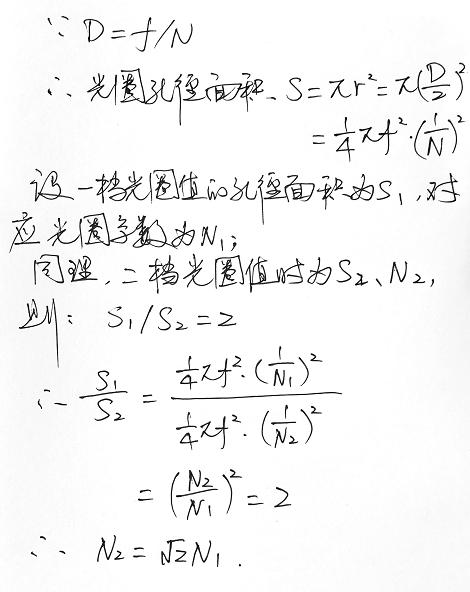 ∵ D=f/N
∴ 光圈孔径面积、S=πr²=π(D/2)²
=1/4πf²·(1/N)²
设一档光圈值的孔径面积为S₁,对
应光圈系数为N₁;
同理,二档光圈值时为S₂、N₂,
则: S₁/S₂=2
∴ S₁/S₂ = 1/4πf²·(1/N₁)² / 1/4πf²·(1/N₂)²
=(N₂/N₁)²=2
∴ N₂=√2N₁.